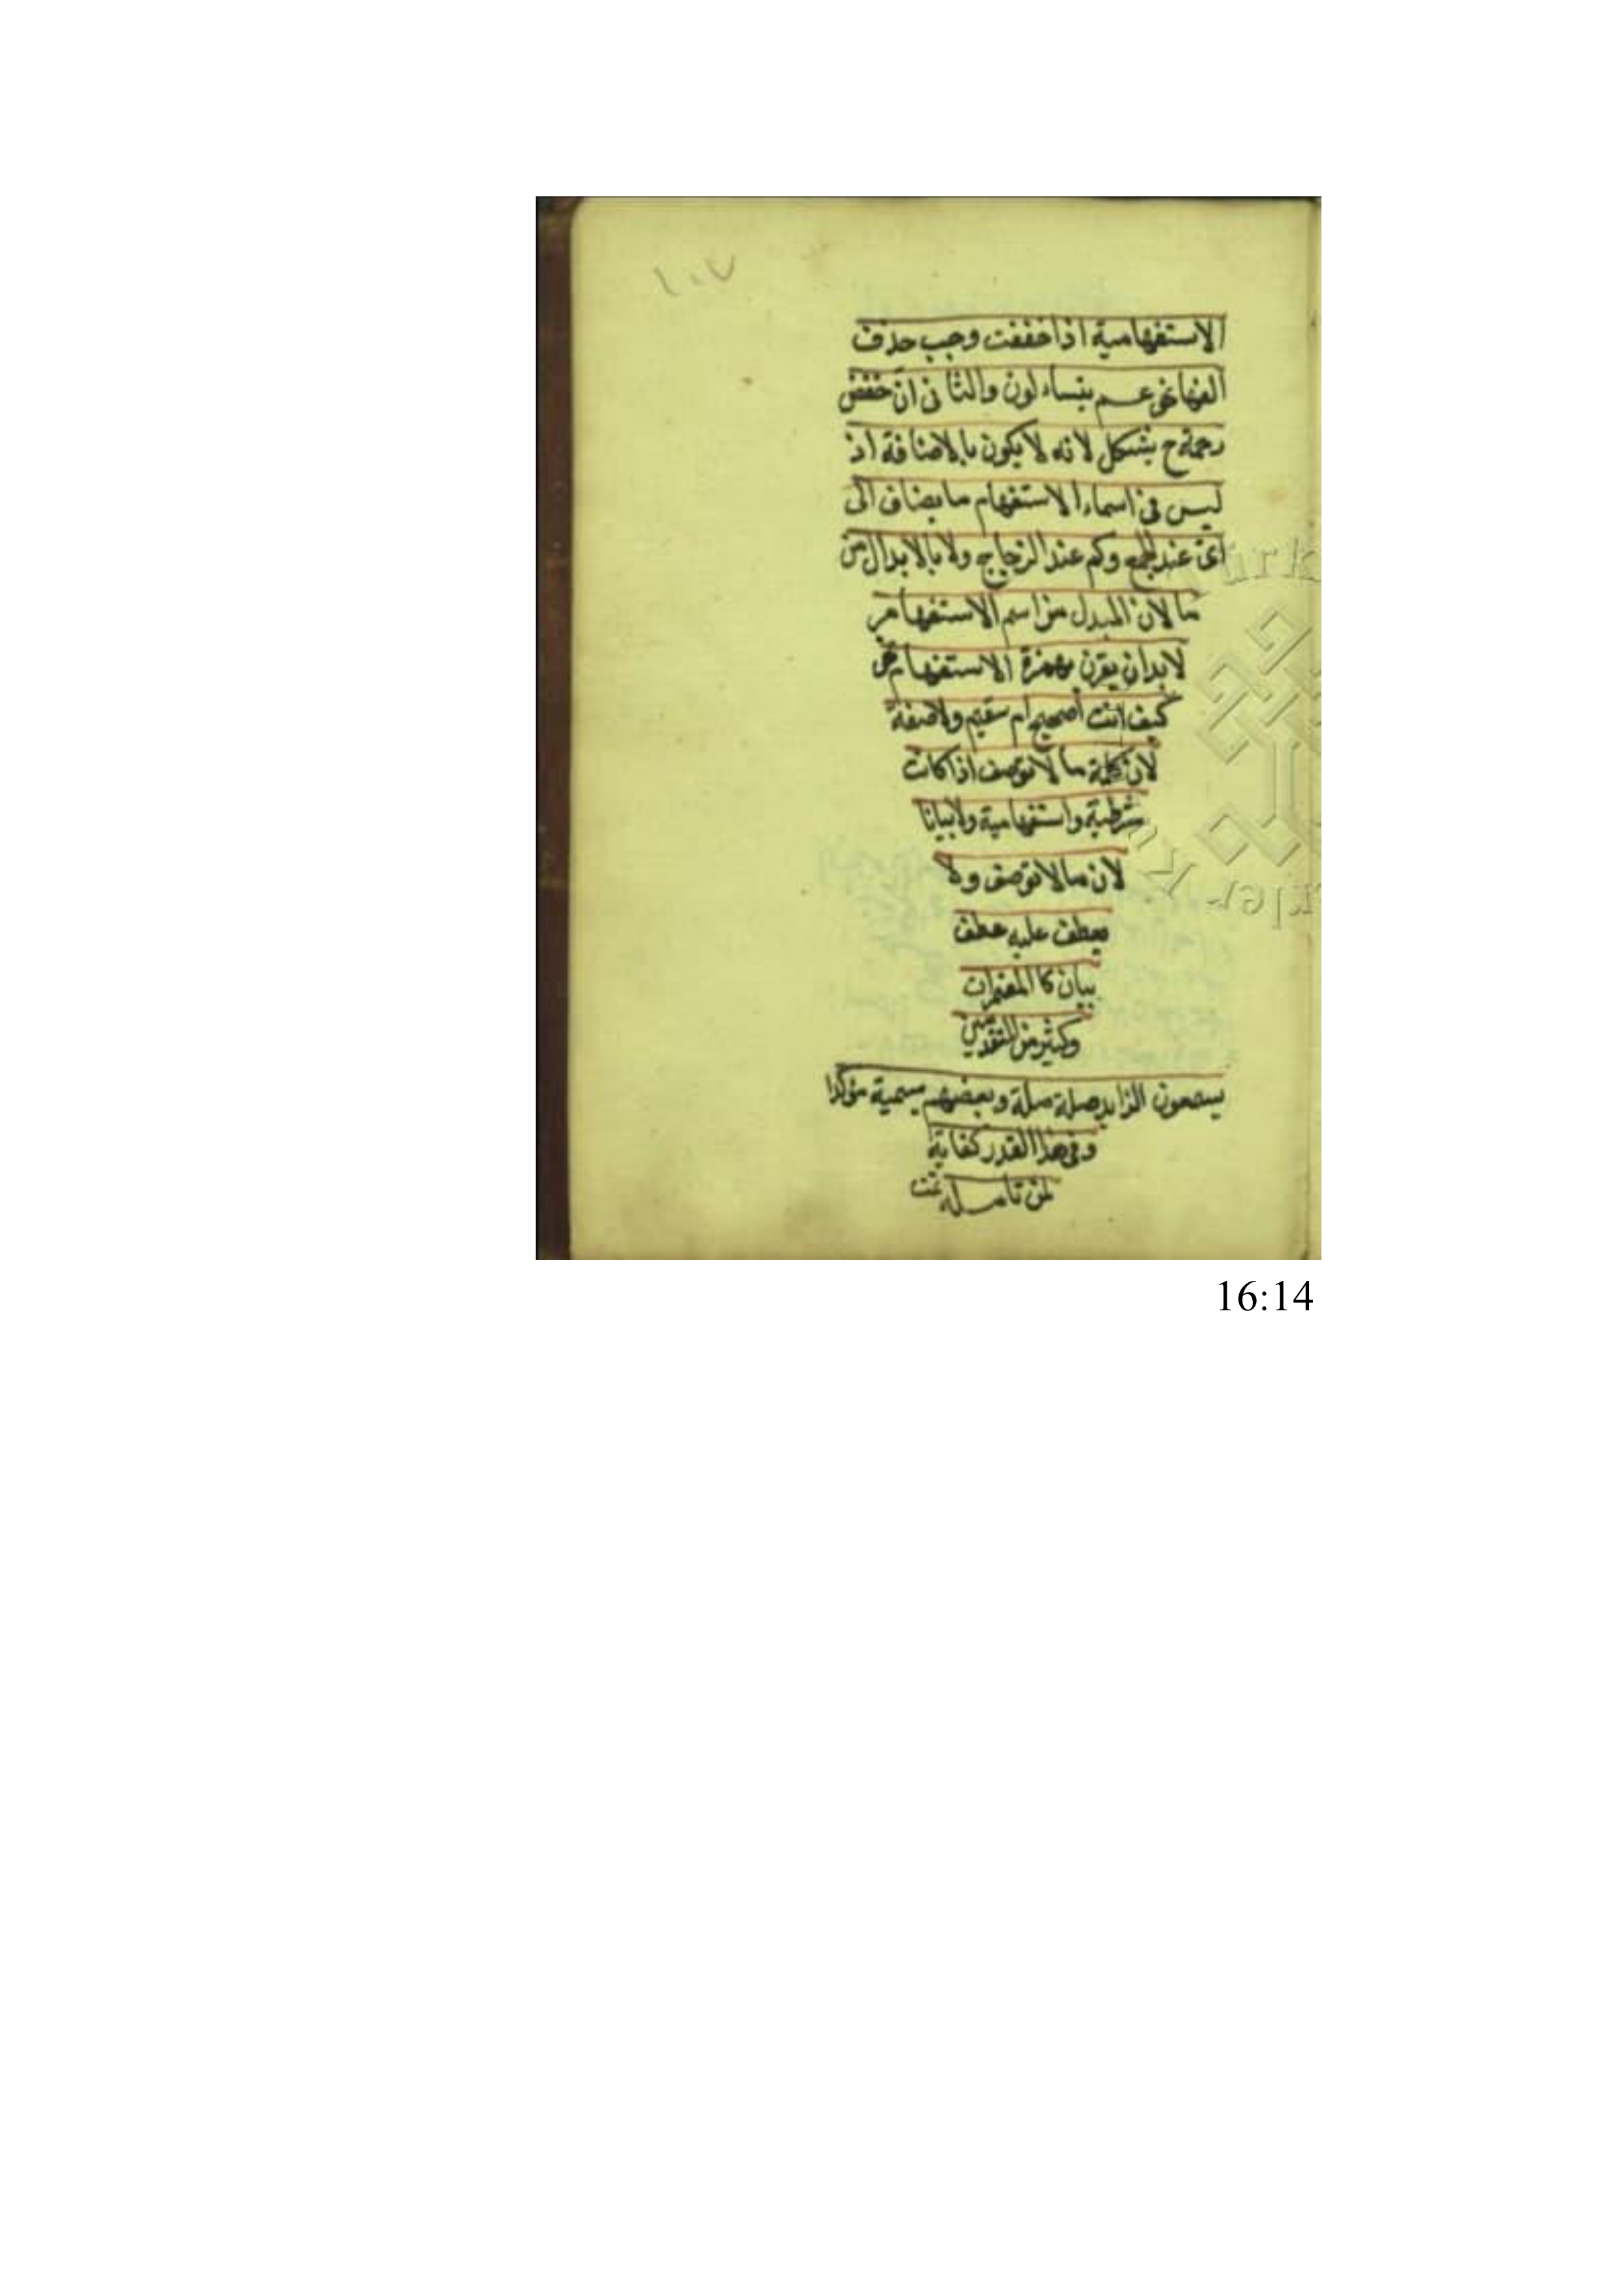 ١٠٧
الاستفهامية اذا خففت وجب حذف
الفها نحو عم يتساءلون والثانى ان خفض
رحمة ح يشكل لانه لا يكون بالاضافة اذ
ليس فى اسماء الاستفهام ما يضاف الى
اى عند الجميع وكم عند الزجاج ولا بالابدال من
ما لان المبدل من اسم الاستفهام
لا بد ان يقرن بهمزة الاستفهام نحو
كيف انت أصحيح ام سقيم ولا صفة
لان كلمة ما لا توصف اذا كانت
شرطية واستفهامية ولا بيانا
لان ما لا توصف ولا
يعطف عليه عطف
بيان كالمضمرات
وكثير من المتقدمين
يسمعون الزايد صلة صلة وبعضهم يسمية مؤكدا
وفى هذا القدر كفاية
لمن تأمله تمت
16:14